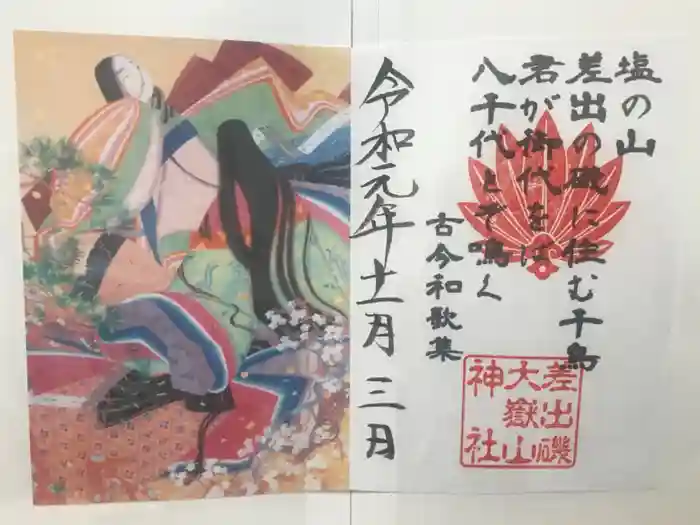 塩の山
差出の磯に住む千鳥
君が御代をば
八千代とぞ鳴く
古今和歌集
令和元年十一月三日
差出磯
大嶽山
神社